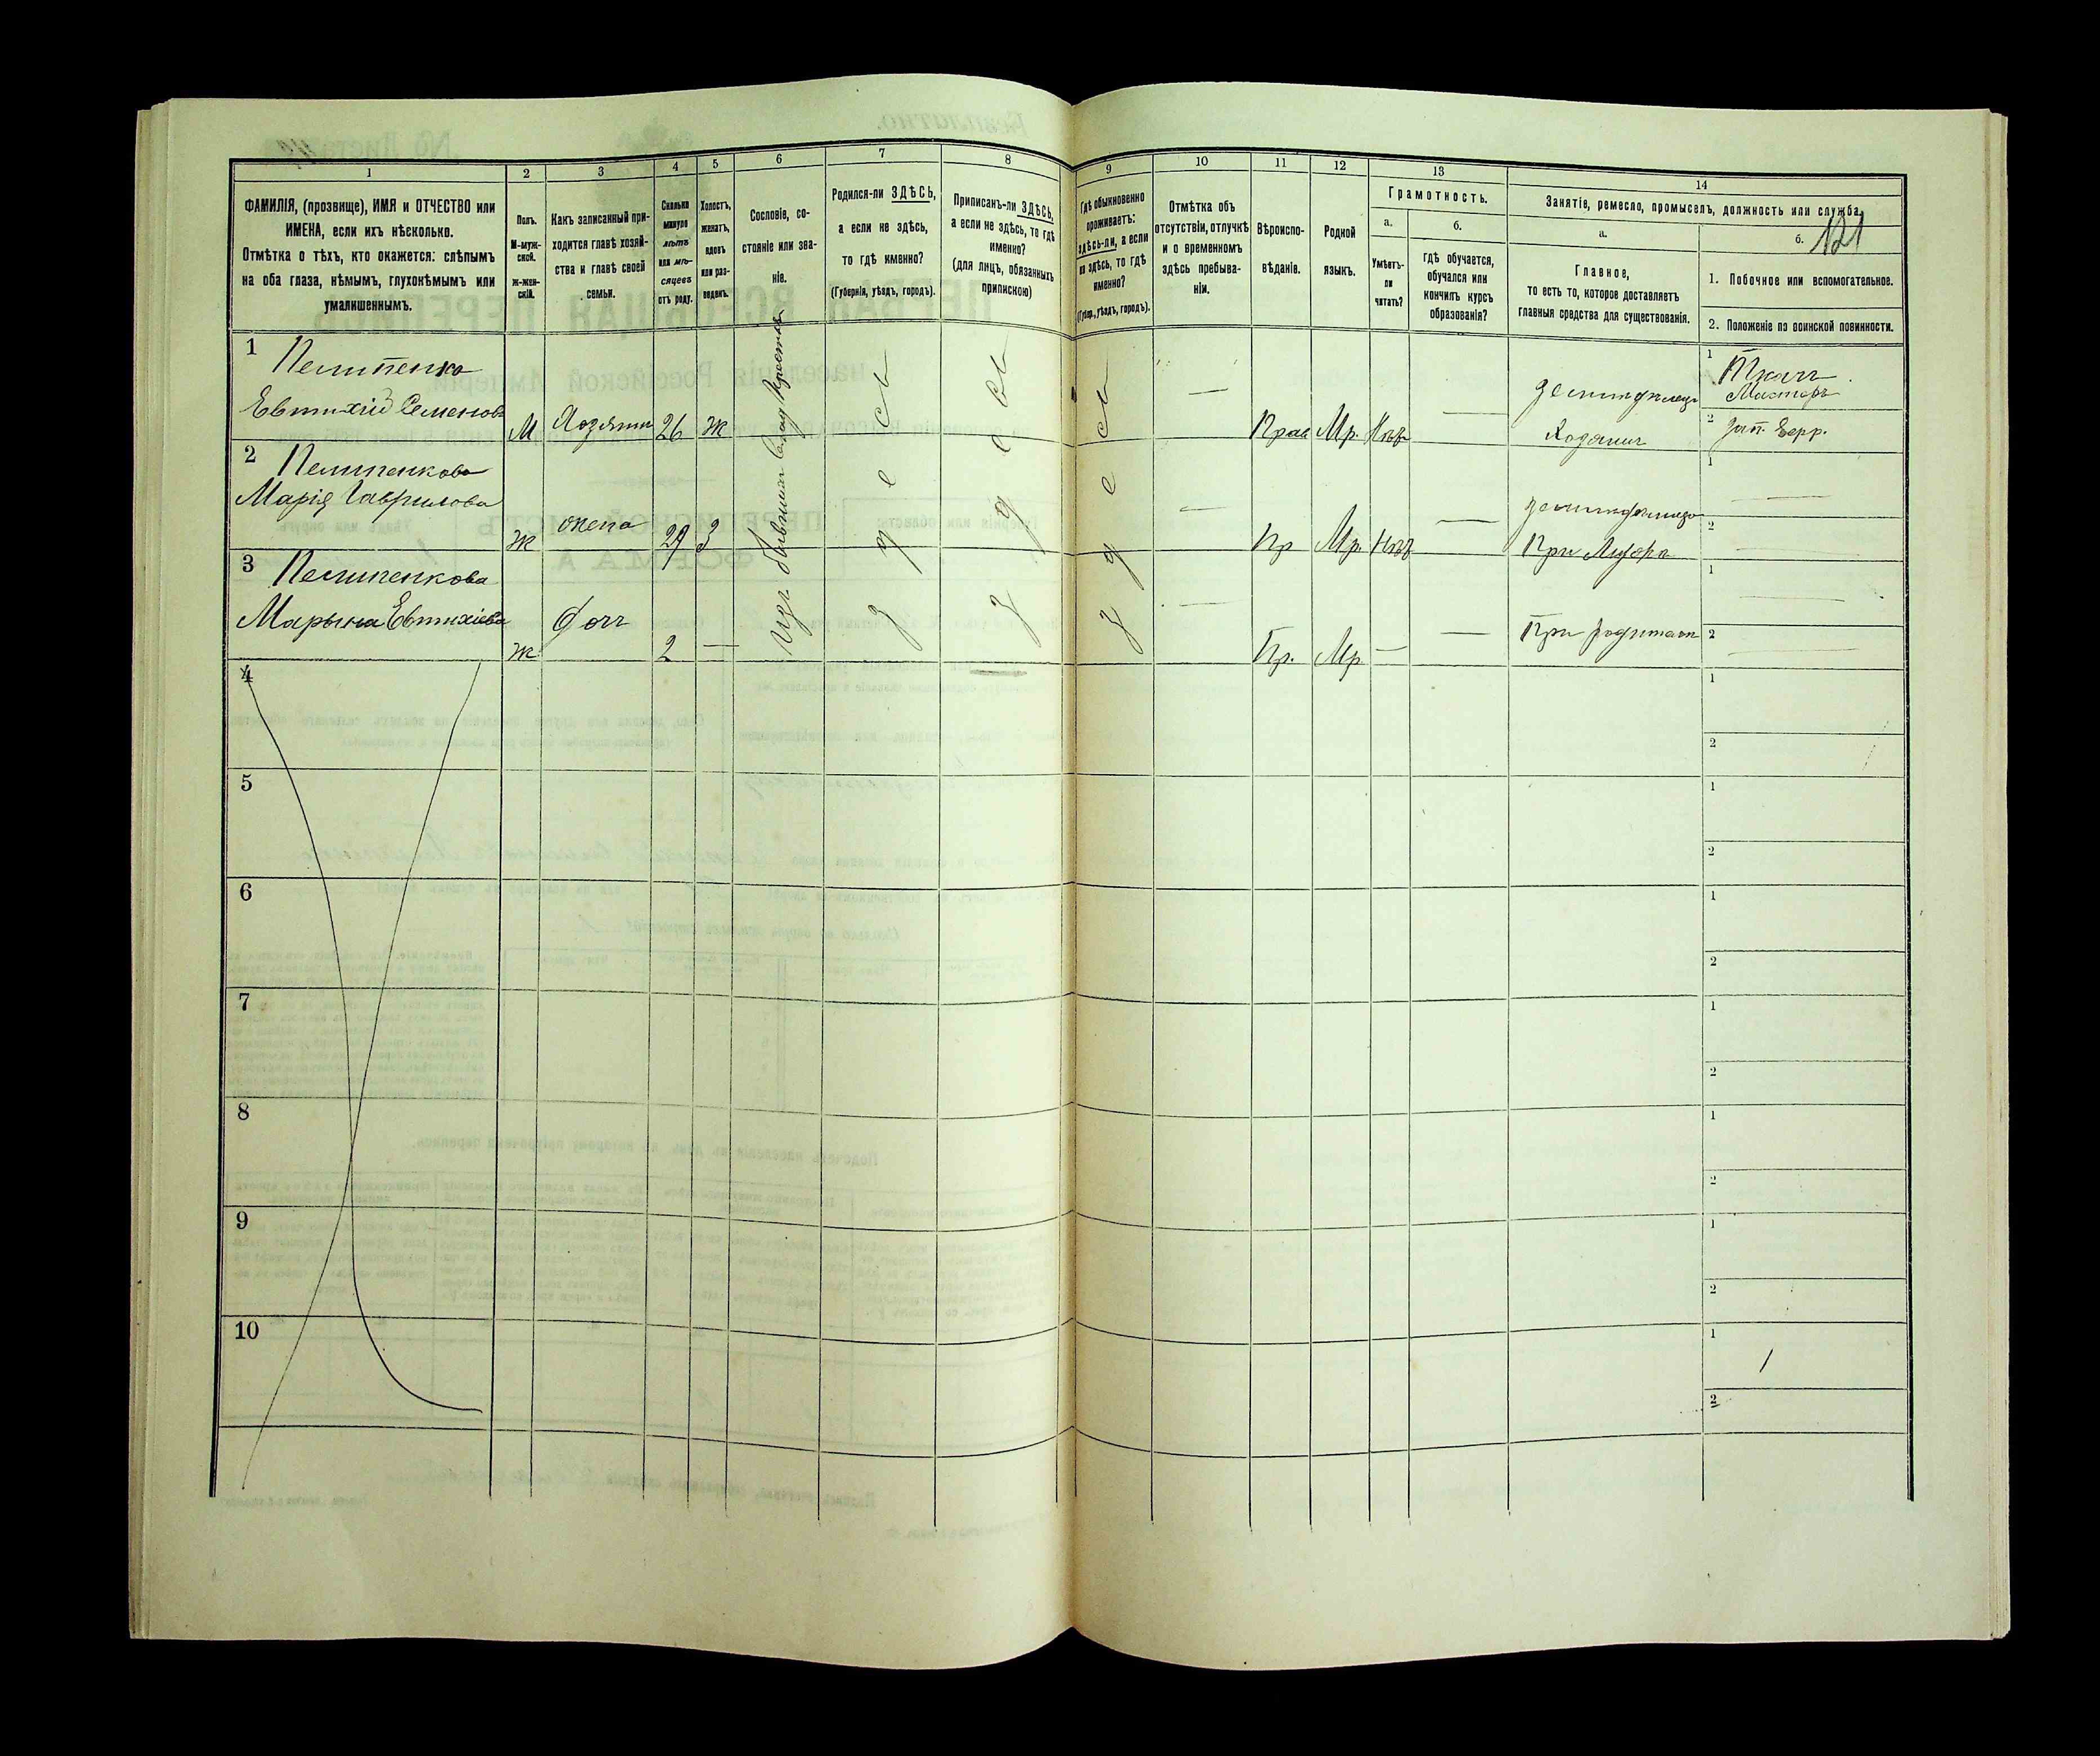 121
1
2
3
4
5
6
7
8
9
10
11
12
13
14
ФАМИЛІЯ, (прозвище), ИМЯ и ОТЧЕСТВО или
ИМЕНА, если ихъ нѣсколько.
Отмѣтка о тѣхъ, кто окажется: слѣпымъ
на оба глаза, нѣмымъ, глухонѣмымъ или
умалишеннымъ.
Полъ.
М-муж-
ской.
ж-жен-
скій.
Какъ записанный при-
ходится главѣ хозяй-
ства и главѣ своей
семьи.
Сколько
минуло
лѣтъ
или мѣ-
сяцевъ
отъ роду.
Холостъ,
женатъ,
вдовъ
или раз-
веденъ.
Сословіе, со-
стояніе или зва-
ніе.
Родился-ли ЗДѢСЬ,
а если не здѣсь,
то гдѣ именно?
(Губернія, уѣздъ, городъ).
Приписанъ-ли ЗДѢСЬ,
а если не здѣсь, то гдѣ
именно?
(для лицъ, обязанныхъ
припискою)
Гдѣ обыкновенно
проживаетъ:
здѣсь-ли, а если
не здѣсь, то гдѣ
именно?
(Губер., уѣздъ, городъ).
Отмѣтка объ
отсутствіи, отлучкѣ
и о временномъ
здѣсь пребыва-
ніи.
Вѣроиспо-
вѣданіе.
Родной
языкъ.
Грамотность.
а.
Умѣетъ-
ли
читать?
б.
гдѣ обучается,
обучался или
кончилъ курсъ
образованія?
Занятіе, ремесло, промыселъ, должность или служба.
а.
Главное,
то есть то, которое доставляетъ
главныя средства для существованія.
б.
1. Побочное или вспомогательное.
2. Положеніе по воинской повинности.
1
Пелипенко
Евтихій Семеновъ
М
Хозяинъ
26
Ж
Изъ бывшихъ
здесь
здесь
здесь
—
Прав
Мр.
Нѣт
—
земледѣлецъ
Хозяинъ
1
Ткачъ
Мастеръ
2
2
Пелипенкова
Марія Гаврилова
Ж
жена
29
З
—
Пр
Мр.
Нѣт
—
При Мужѣ
1
—
2
—
3
Пелипенкова
Марына Евтихіева
Ж
Дочь
2
—
—
Пр.
Мр
—
—
При родителях
1
—
2
—
4
1
2
5
1
2
6
1
2
7
1
2
8
1
2
9
1
2
10
1
2